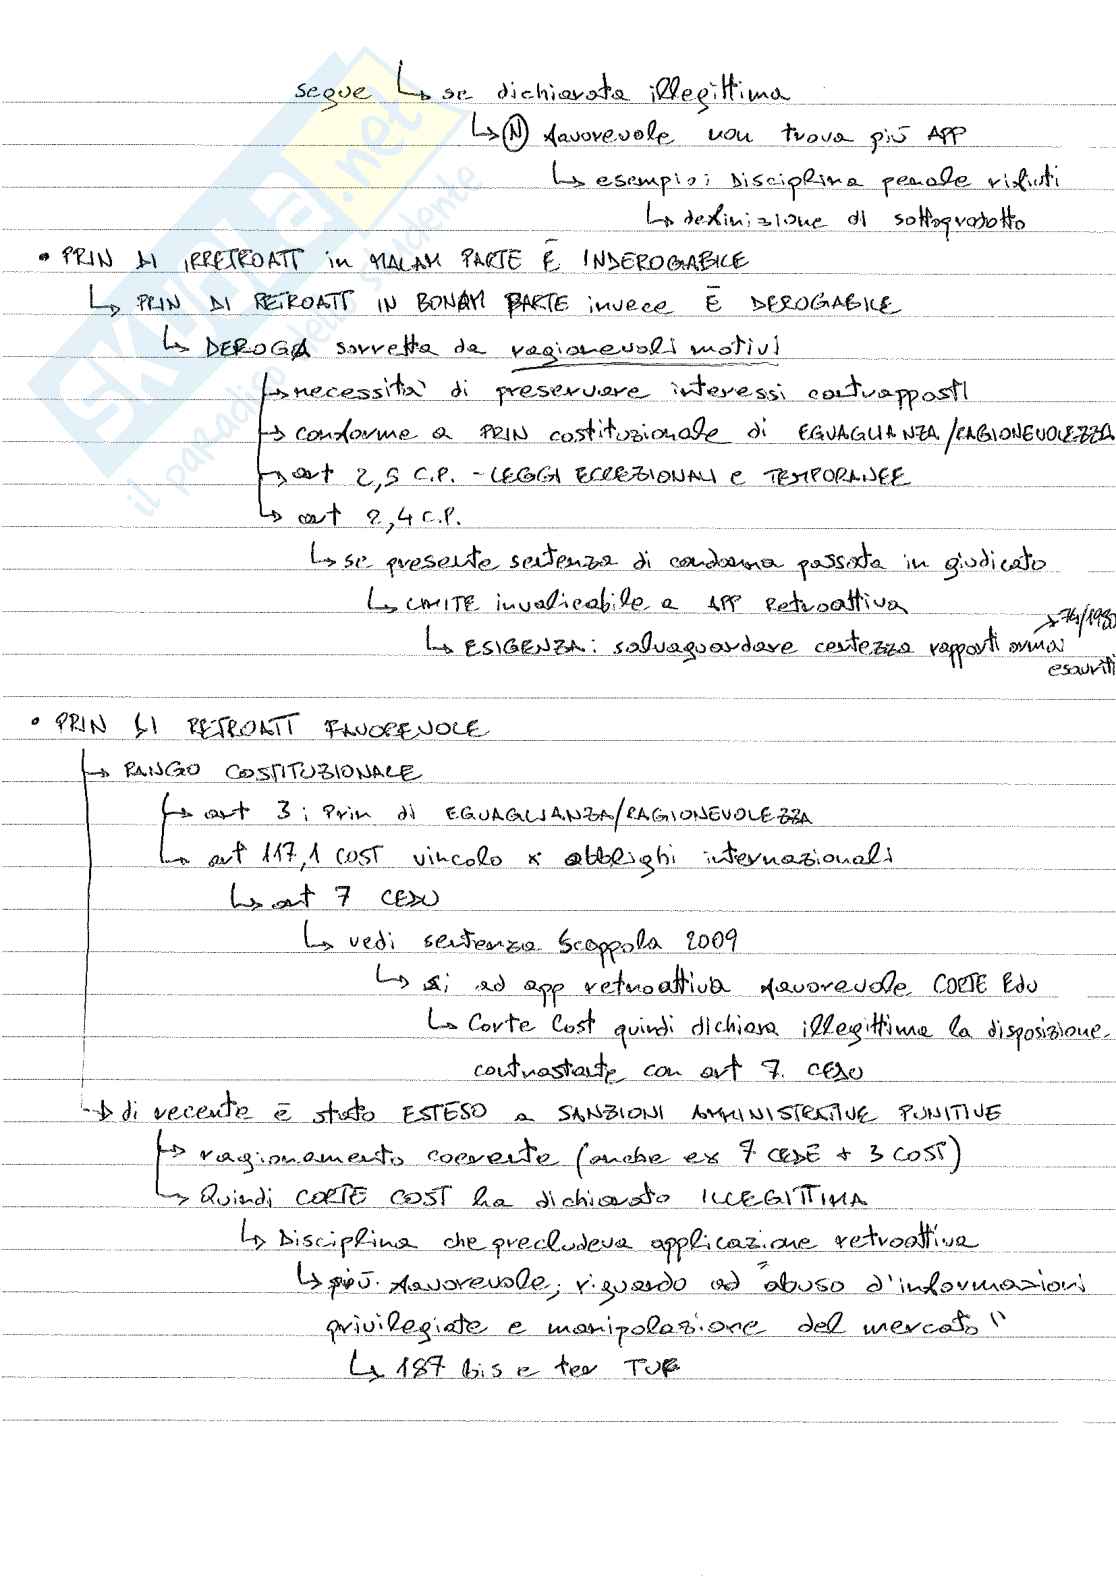 segue ↳ se dichiarata illegittima
↳ (N) favorevole non trova più APP
↳ esempio: Disciplina penale rifiuti
↳ definizione di sottoprodotto
• PRIN DI IRRETROATT in MALAM PARTE È INDEROGABILE
↳ PRIN DI RETROATT IN BONAM PARTE invece È DEROGABILE
↳ DEROGA sorretta da ragionevoli motivi
→ necessità di preservare interessi contrapposti
→ conforme a PRIN costituzionale di EGUAGLIANZA/RAGIONEVOLEZZA
→ art 2,5 C.P. - LEGGI ECCEZIONALI e TEMPORANEE
↳ art 2,4 C.P.
↳ se presente sentenza di condanna passata in giudicato
↳ LIMITE invalicabile a APP Retroattiva
→ 74/1980
↳ ESIGENZA: salvaguardare certezza rapporti ormai
esauriti
• PRIN DI RETROATT FAVOREVOLE
→ RANGO COSTITUZIONALE
→ art 3: Prin di EGUAGLIANZA/RAGIONEVOLEZZA
↳ art 117,1 COST vincolo x obblighi internazionali
↳ art 7 CEDU
↳ vedi sentenza Scoppola 2009
↳ si ad app retroattiva favorevole CORTE Edu
↳ Corte Cost quindi dichiara illegittima la disposizione
contrastante con art 7 CEDU
→ di recente è stato ESTESO a SANZIONI AMMINISTRATIVE PUNITIVE
→ ragionamento coerente (anche ex 7 CEDE + 3 COST)
↳ Quindi CORTE COST ha dichiarato ILLEGITTIMA
↳ Disciplina che precludeva applicazione retroattiva
↳ più favorevole, riguardo ad "abuso d'informazioni
privilegiate e manipolazione del mercato"
↳ 187 bis e ter TUF
SKUOLA.net
il paradiso dello studente